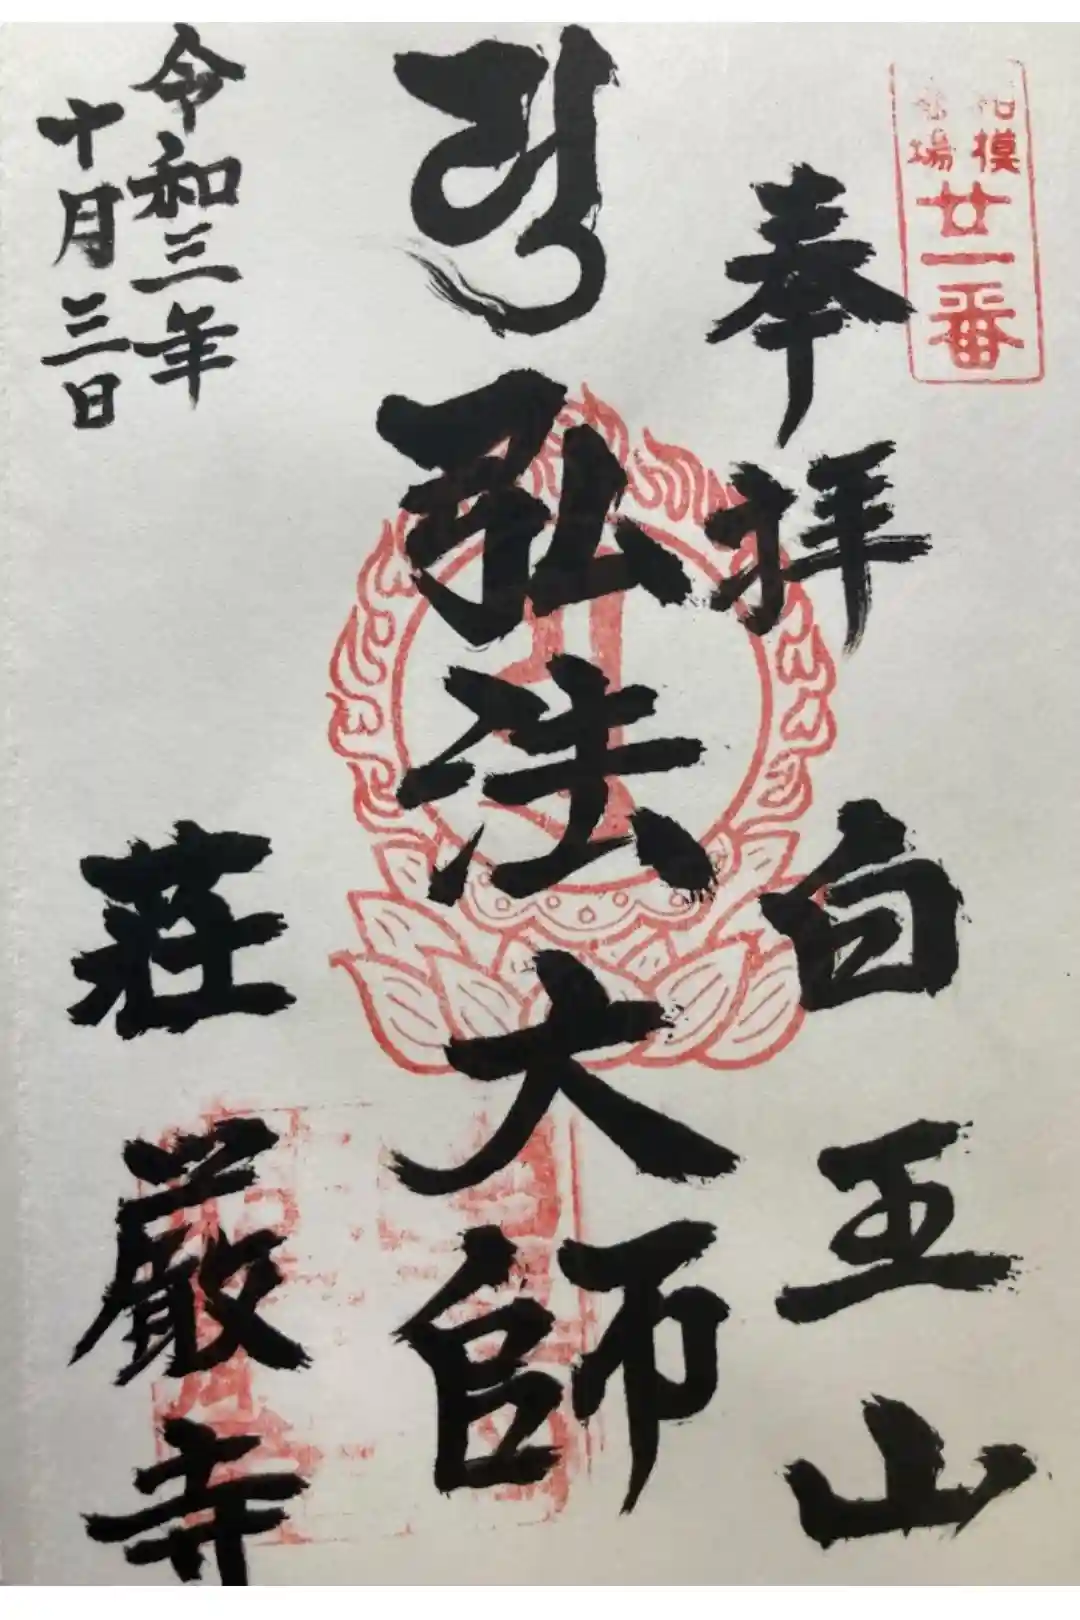 相模
霊場
廿一番
奉拝
白王山
弘法大師
荘厳寺
令和三年
十月三日